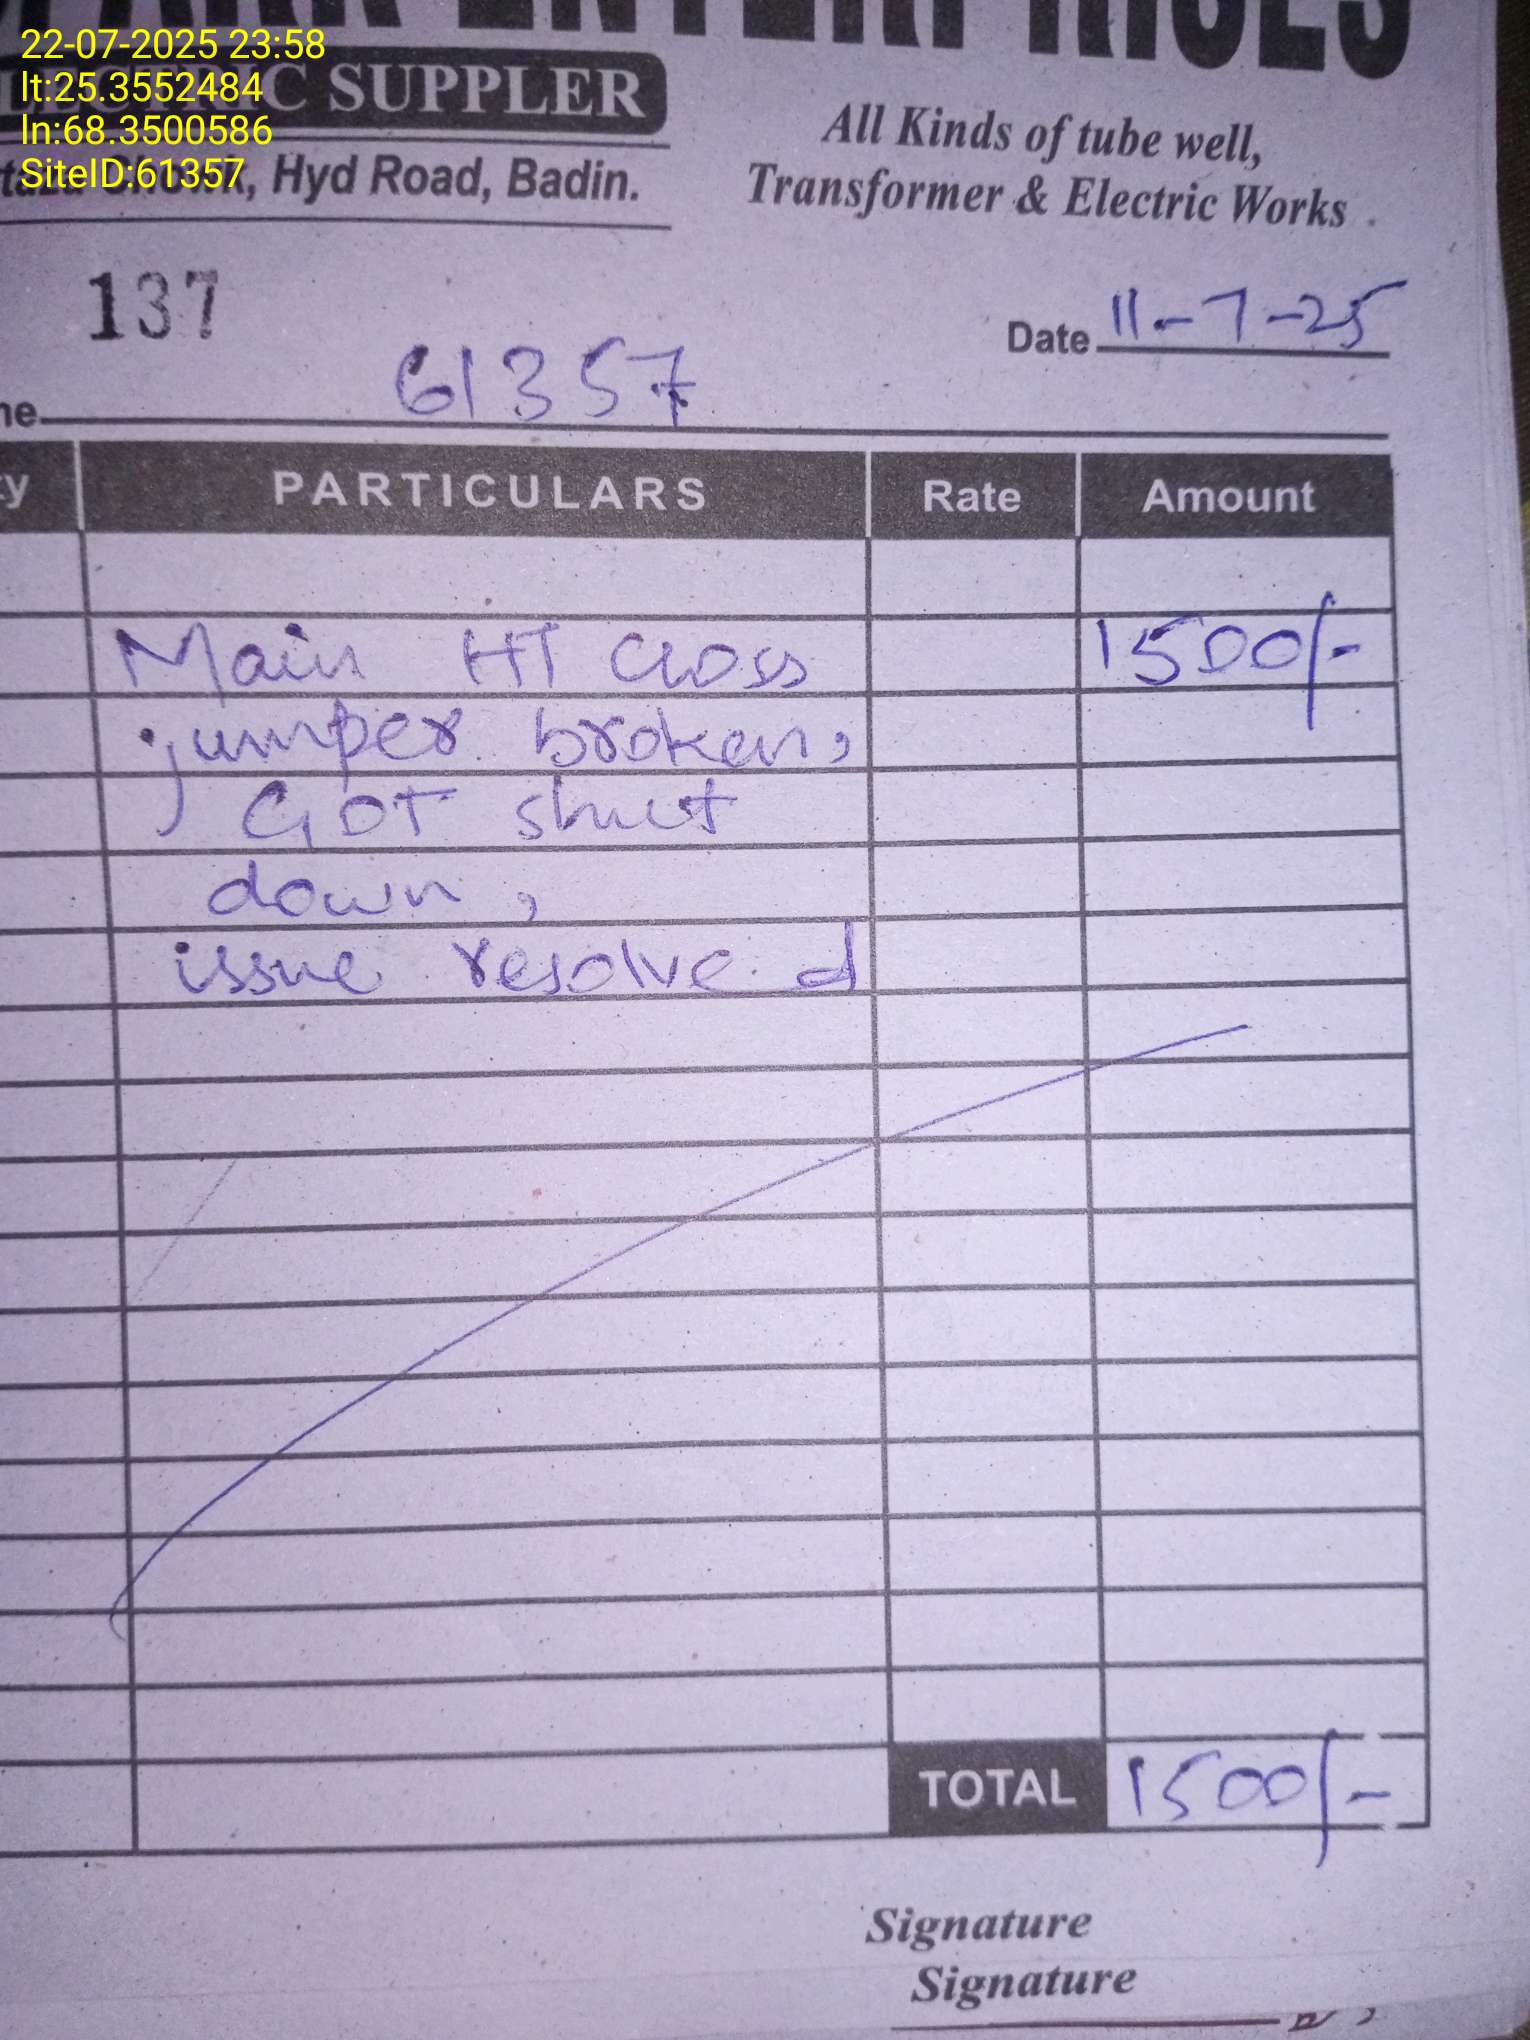 22-07-2025 23:58
lt:25.3552484
ln:68.3500586
SiteID:61357
ENTERPRISES
ELECTRIC SUPPLER
Hyd Road, Badin.
All Kinds of tube well,
Transformer & Electric Works
137
Date 11-7-25
61357
PARTICULARS Rate Amount
Main HT Cross 1500/-
jumper broken,
GOT shut
down,
issue resolved
TOTAL 1500/-
Signature
Signature